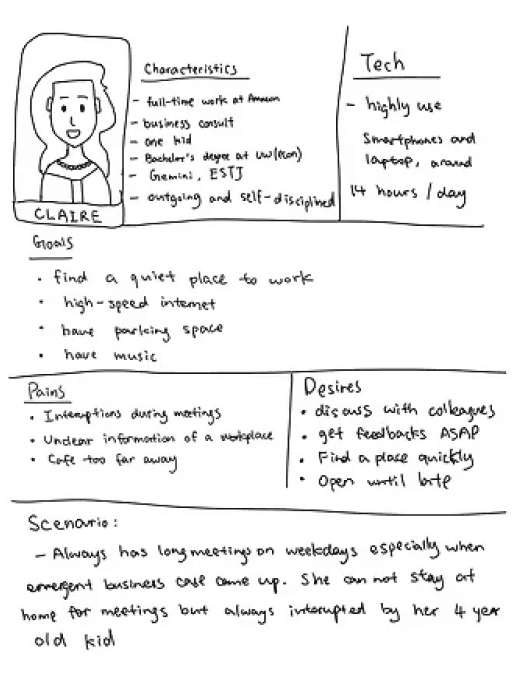 CLAIRE
Characteristics
- full-time work at Amazon
- business consult
- one kid
- Bachelor's degree at UW (Econ)
- Gemini, ESTJ
- outgoing and self-disciplined
Tech
- highly use
Smartphones and
laptop, around
14 hours / day
Goals
• find a quiet place to work
• high-speed internet
• have parking space
• have music
Pains
• Interruptions during meetings
• Unclear information of a workplace
• Cafe too far away
Desires
• discuss with colleagues
• get feedbacks ASAP
• Find a place quickly
• Open until late
Scenario:
- Always has long meetings on weekdays especially when
emergent business case came up. She can not stay at
home for meetings but always interupted by her 4 year
old kid